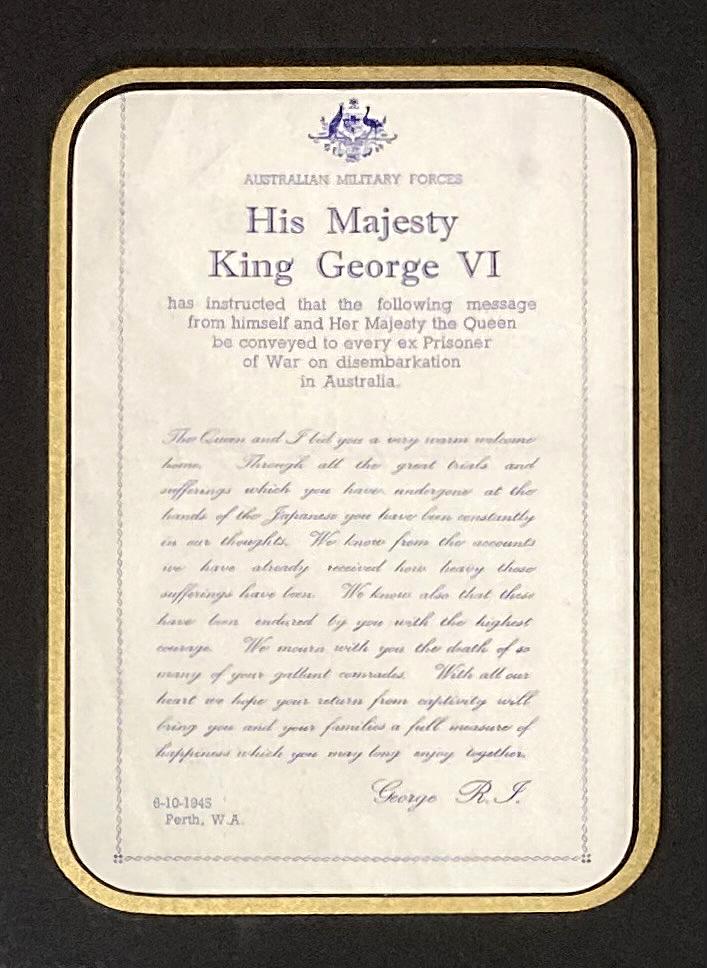 AUSTRALIAN MILITARY FORCES
His Majesty
King George VI
has instructed that the following message
from himself and Her Majesty the Queen
be conveyed to every ex Prisoner
of War on disembarkation
in Australia.
The Queen and I bid you a very warm welcome
home. Through all the great trials and
sufferings which you have undergone at the
hands of the Japanese you have been constantly
in our thoughts. We know from the accounts
we have already received how heavy those
sufferings have been. We know also that these
have been endured by you with the highest
courage. We mourn with you the death of so
many of your gallant comrades. With all our
heart we hope your return from captivity will
bring you and your families a full measure of
happiness which you may long enjoy together.
George R. I.
6-10-1945
Perth, W.A.